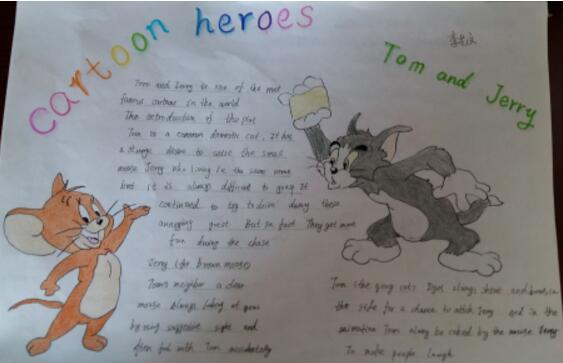 cartoon heroes
Tom and Jerry
Tom and Jerry is one of the most
famous cartoons in the world
The introduction of the
Tom is a common domestic cat, It has
a strong desire to seize the small
mouse Jerry who living in the same
but it is always difficult to grasp It
continued to try to drive away these
annoying guest But in fact They get more
fun during the chase
Jerry (the brown mouse)
Tom's neighbor a clear
mouse always
by using supportive sight and
often fool with Tom accidentally
Tom (the gray cat) Eyes always shine and
the side for a chance to attick Jerry and in the
animation Tom always be by the mouse Jerry
To make people laugh